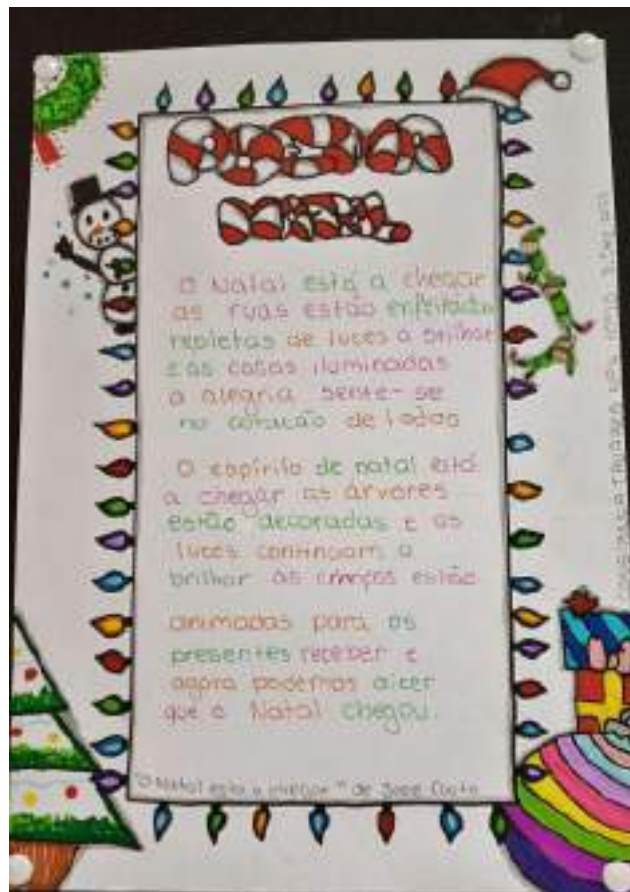 POEMA
NATAL
O Natal está a chegar
as ruas estão enfeitadas
repletas de luces a brilhar
e as casas iluminadas
a alegria sente-se
no coração de todos
O espírito de natal está
a chegar as árvores
estão decoradas e as
luces continuam a
brilhar as crianças estão
animadas para os
presentes receber e
agora podemos dizer
que o Natal chegou.
"O Natal está a chegar" de José Couto